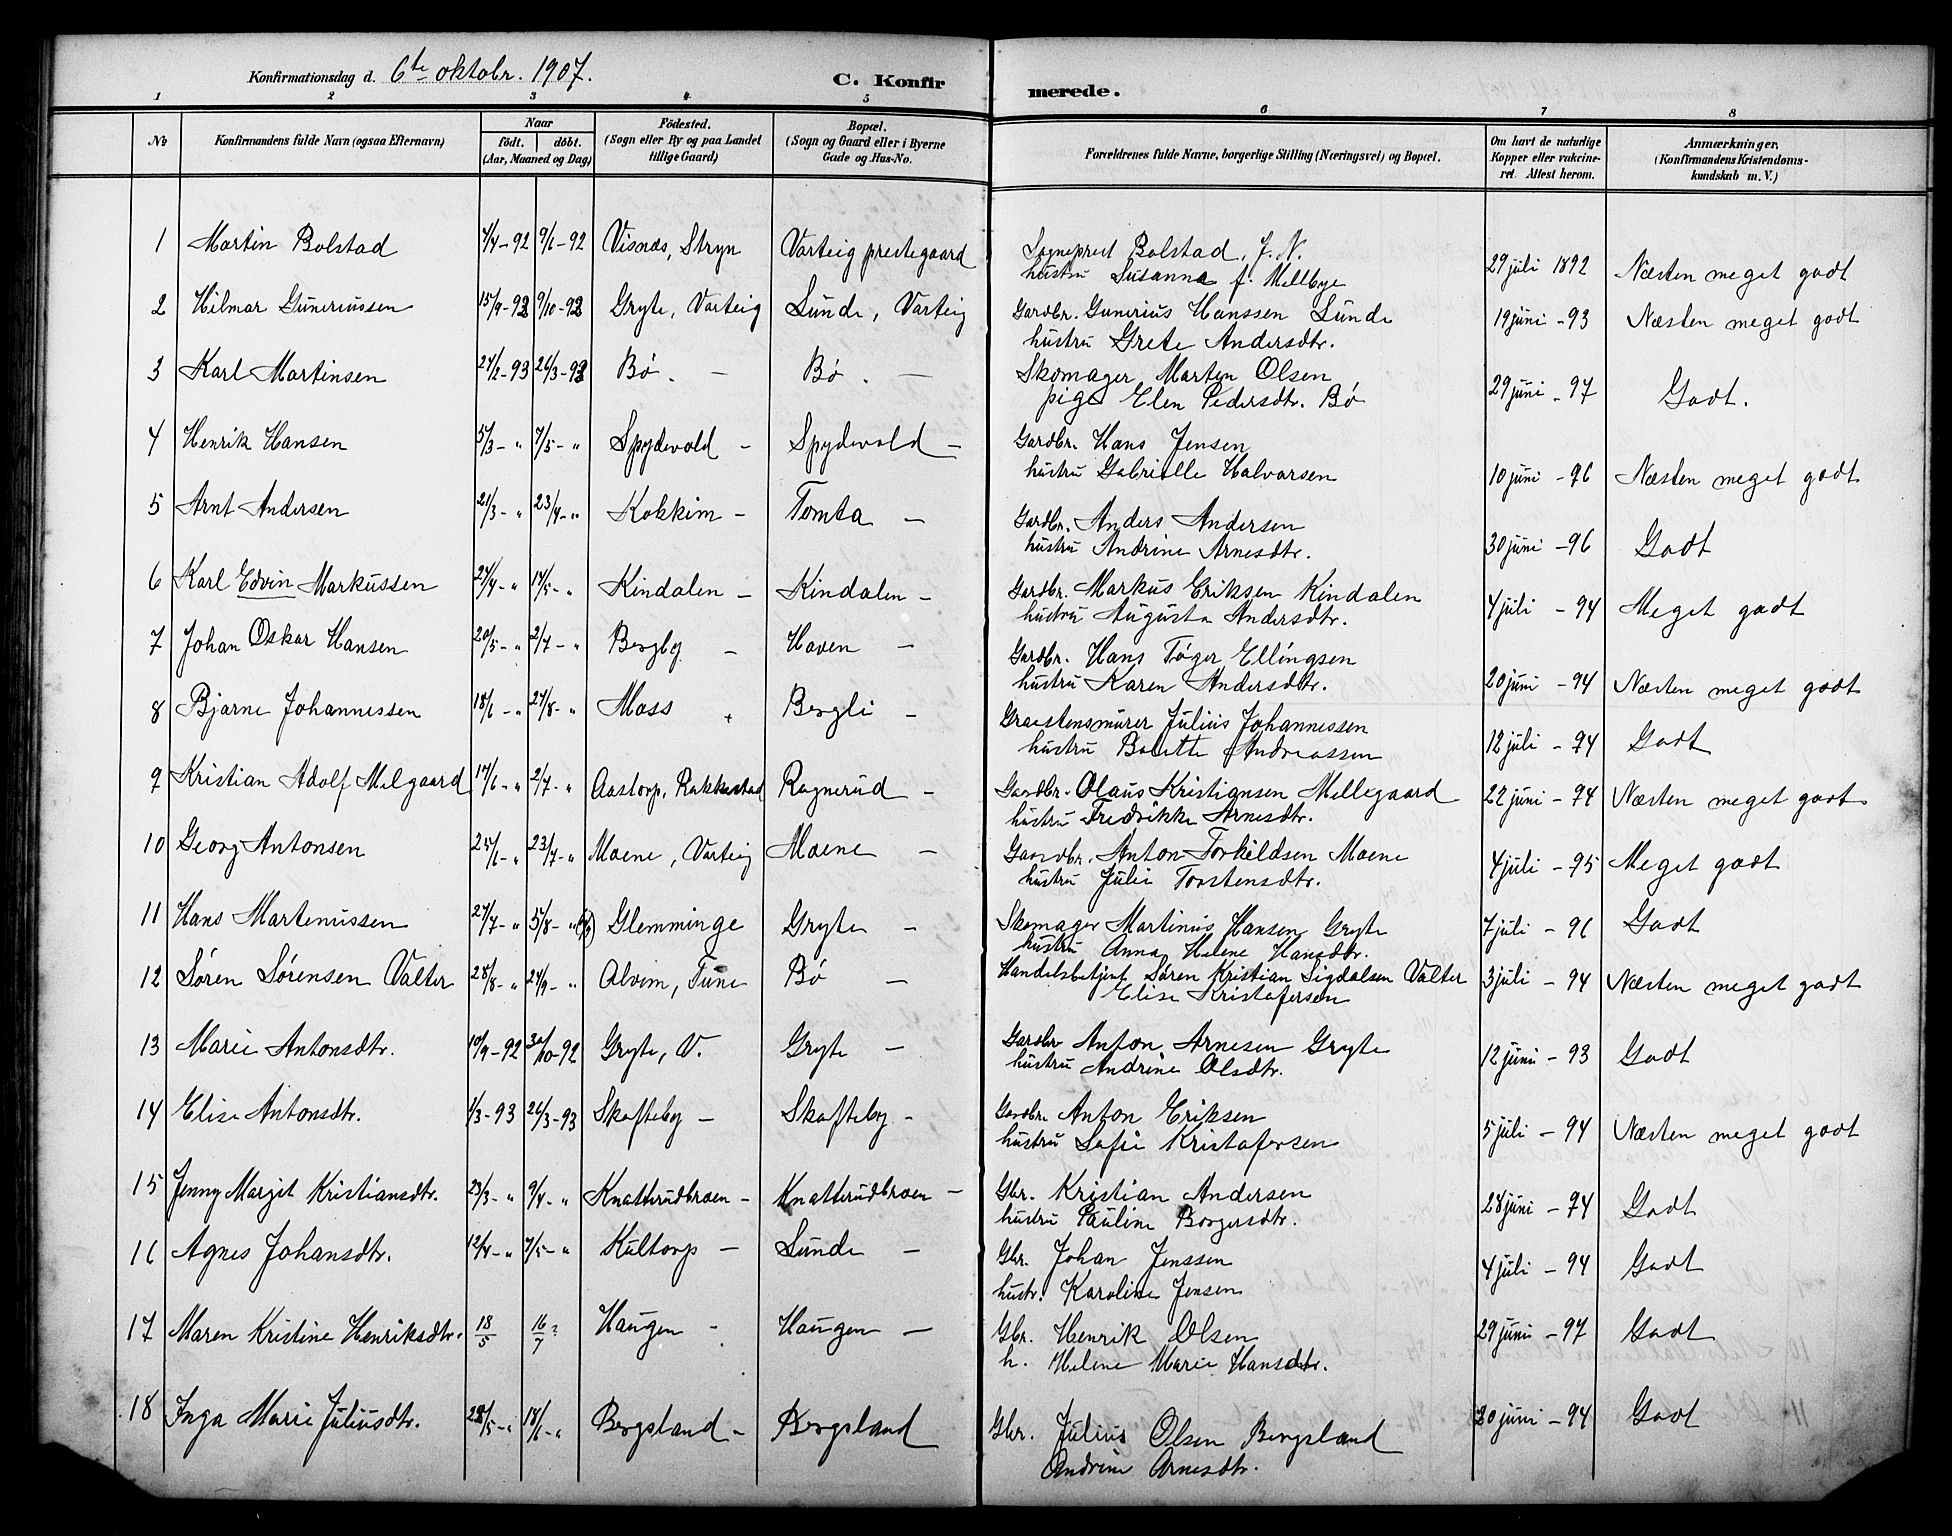 Konfirmationsdag d. 6te oktobr. 1907.
C. Konfirmerede.
1 2 3 4 5 6 7 8
No
Konfirmandens fulde Navn (ogsaa Efternavn)
Naar
født. døbt.
(Aar, Maaned og Dag)
Fødested.
(Sogn eller By og paa Landet
tillige Gaard)
Bopæl.
(Sogn og Gaard eller i Byerne
Gade og Hus-No.
Forældrenes fulde Navne, borgerlige Stilling (Næringsvei) og Bopæl.
Om havt de naturlige
Kopper eller vakcineret.
Attest herom.
Anmærkninger.
(Konfirmandens Kristendomskundskab
m. V.)
1 Martin Bolstad 7/4-92 9/6-92 Visnæs, Stryn Varteig prestegaard Sogneprest Bolstad, J. N. 29 juli 1892 Næsten meget godt
hustru Susanna f. Mellbye
2 Hilmar Guneriussen 15/9-92 9/10-92 Gryte, Varteig Lunde, Varteig Gardbr. Gunerius Hanssen Lunde 19 juni -93 Næsten meget godt
hustru Grete Andersdtr.
3 Karl Martinsen 27/2-93 26/3-93 Bø. - Bø. - Skomager Marten Olsen 29 juni -97 Godt.
pige Elen Pedersdtr. Bø
4 Henrik Hansen 5/3- " 7/5- " Spydevold - Spydevold - Gardbr. Hans Jensen 10 juni -96 Næsten meget godt
hustru Gabrielle Halvorsen
5 Arnt Andersen 21/3- " 23/4- " Kokkim - Tomta - Gardbr. Anders Andersen 30 juni -96 Godt
hustru Andrine Arnesdtr.
6 Karl Edvin Markussen 24/4- " 14/5- " Kindalen - Kindalen - Gardbr. Markus Eriksen Kindalen 4 juli -94 Meget godt
hustru Augusta Andersdtr.
7 Johan Oskar Hansen 20/5- " 2/7- " Bergby - Haven - Gardbr. Hans Tøger Ellingsen 20 juni -94 Næsten meget godt
hustru Karen Andersdtr.
8 Bjarne Johannessen 18/6- " 27/8- " Moss Bergli - Graastensmurer Julius Johannessen 12 juli -94 Godt
hustru Bolette Andreassen
9 Kristian Adolf Melgaard 17/6- " 2/7- " Aastorp, Rakkestad Ragnerud - Gardbr. Olaus Kristiansen Mellegaard 22 juni -94 Næsten meget godt
hustru Fredrikke Arnesdtr.
10 Georg Antonsen 25/6- " 23/7- " Moene, Varteig Moene - Gardbr. Anton Torkildsen Moene 4 juli -95 Meget godt
hustru Julie Torstensdtr.
11 Hans Martenussen 27/7- " 5/8- " Glemminge Gryte - Skomager Martinus Hansen Gryte 7 juli -96 Godt
hustru Anna Helene Hansdtr.
12 Søren Sørensen Valter 28/8- " 24/9- " Alvim, Tune Bø - Handelsbetjent Søren Kristian Sigdalsen Valter 3 juli -94 Næsten meget godt
Elise Kristofersen
13 Marie Antonsdtr. 10/9-92 30/10-92 Gryte, V. Gryte - Gardbr Anton Arnesen Gryte 12 juni -93 Godt
hustru Andrine Olsdtr.
14 Elise Antonsdtr. 1/3-93 26/3-93 Skofteby - Skofteby - Gardbr. Anton Eriksen 5 juli -94 Næsten meget godt
hustru Sofie Kristofersen
15 Jenny Margit Kristiansdtr. 23/3- " 9/4- " Knatterudbroen - Knatterudbroen - Gbr. Kristian Andersen 28 juni -94 Godt
hustru Pauline Borgersdtr.
16 Agnes Johansdtr. 12/4- " 7/5- " Kultorp - Lunde - Gbr. Johan Jenssen 4 juli -94 Godt
hustr. Karoline Jensen
17 Maren Kristine Henriksdtr. 18/5 16/7 " Haugen - Haugen - Gbr. Henrik Olsen 29 juni -97 Godt
h. Helene Marie Hansdtr.
18 Inga Marie Juliusdtr. 28/5- " 18/6- " Bergsland - Bergsland Gbr. Julius Olsen Bergsland 20 juni -94 Godt
Andrine Arnesdtr.